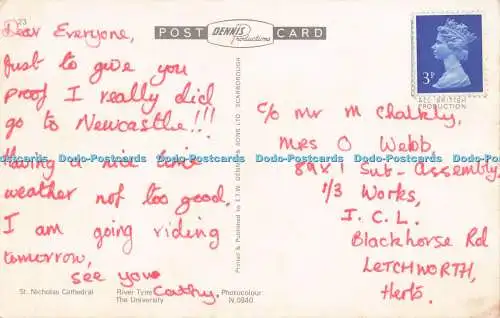 23
POST Dennis Productions CARD
Dear Everyone,
Just to give you
proof I really did
go to Newcastle!!!
Having a nice time
weather not too good,
I am going riding
tomorrow,
see you
Cathy.
St. Nicholas Cathedral
River Tyne
The University
Photocolour
N.0940
Printed & Published by E.T.W. DENNIS & SONS LTD., SCARBOROUGH
3P
ALL BRITISH
PRODUCTION
c/o Mr M Chalkly,
Mrs O Webb
89x1 Sub-Assembly
1/3 Works,
I.C.L.
Blackhorse Rd
LETCHWORTH,
Herts.
Dodo-Postcards Dodo-Postcards Dodo-Postcards Dodo-Postcards Dodo-Postcards